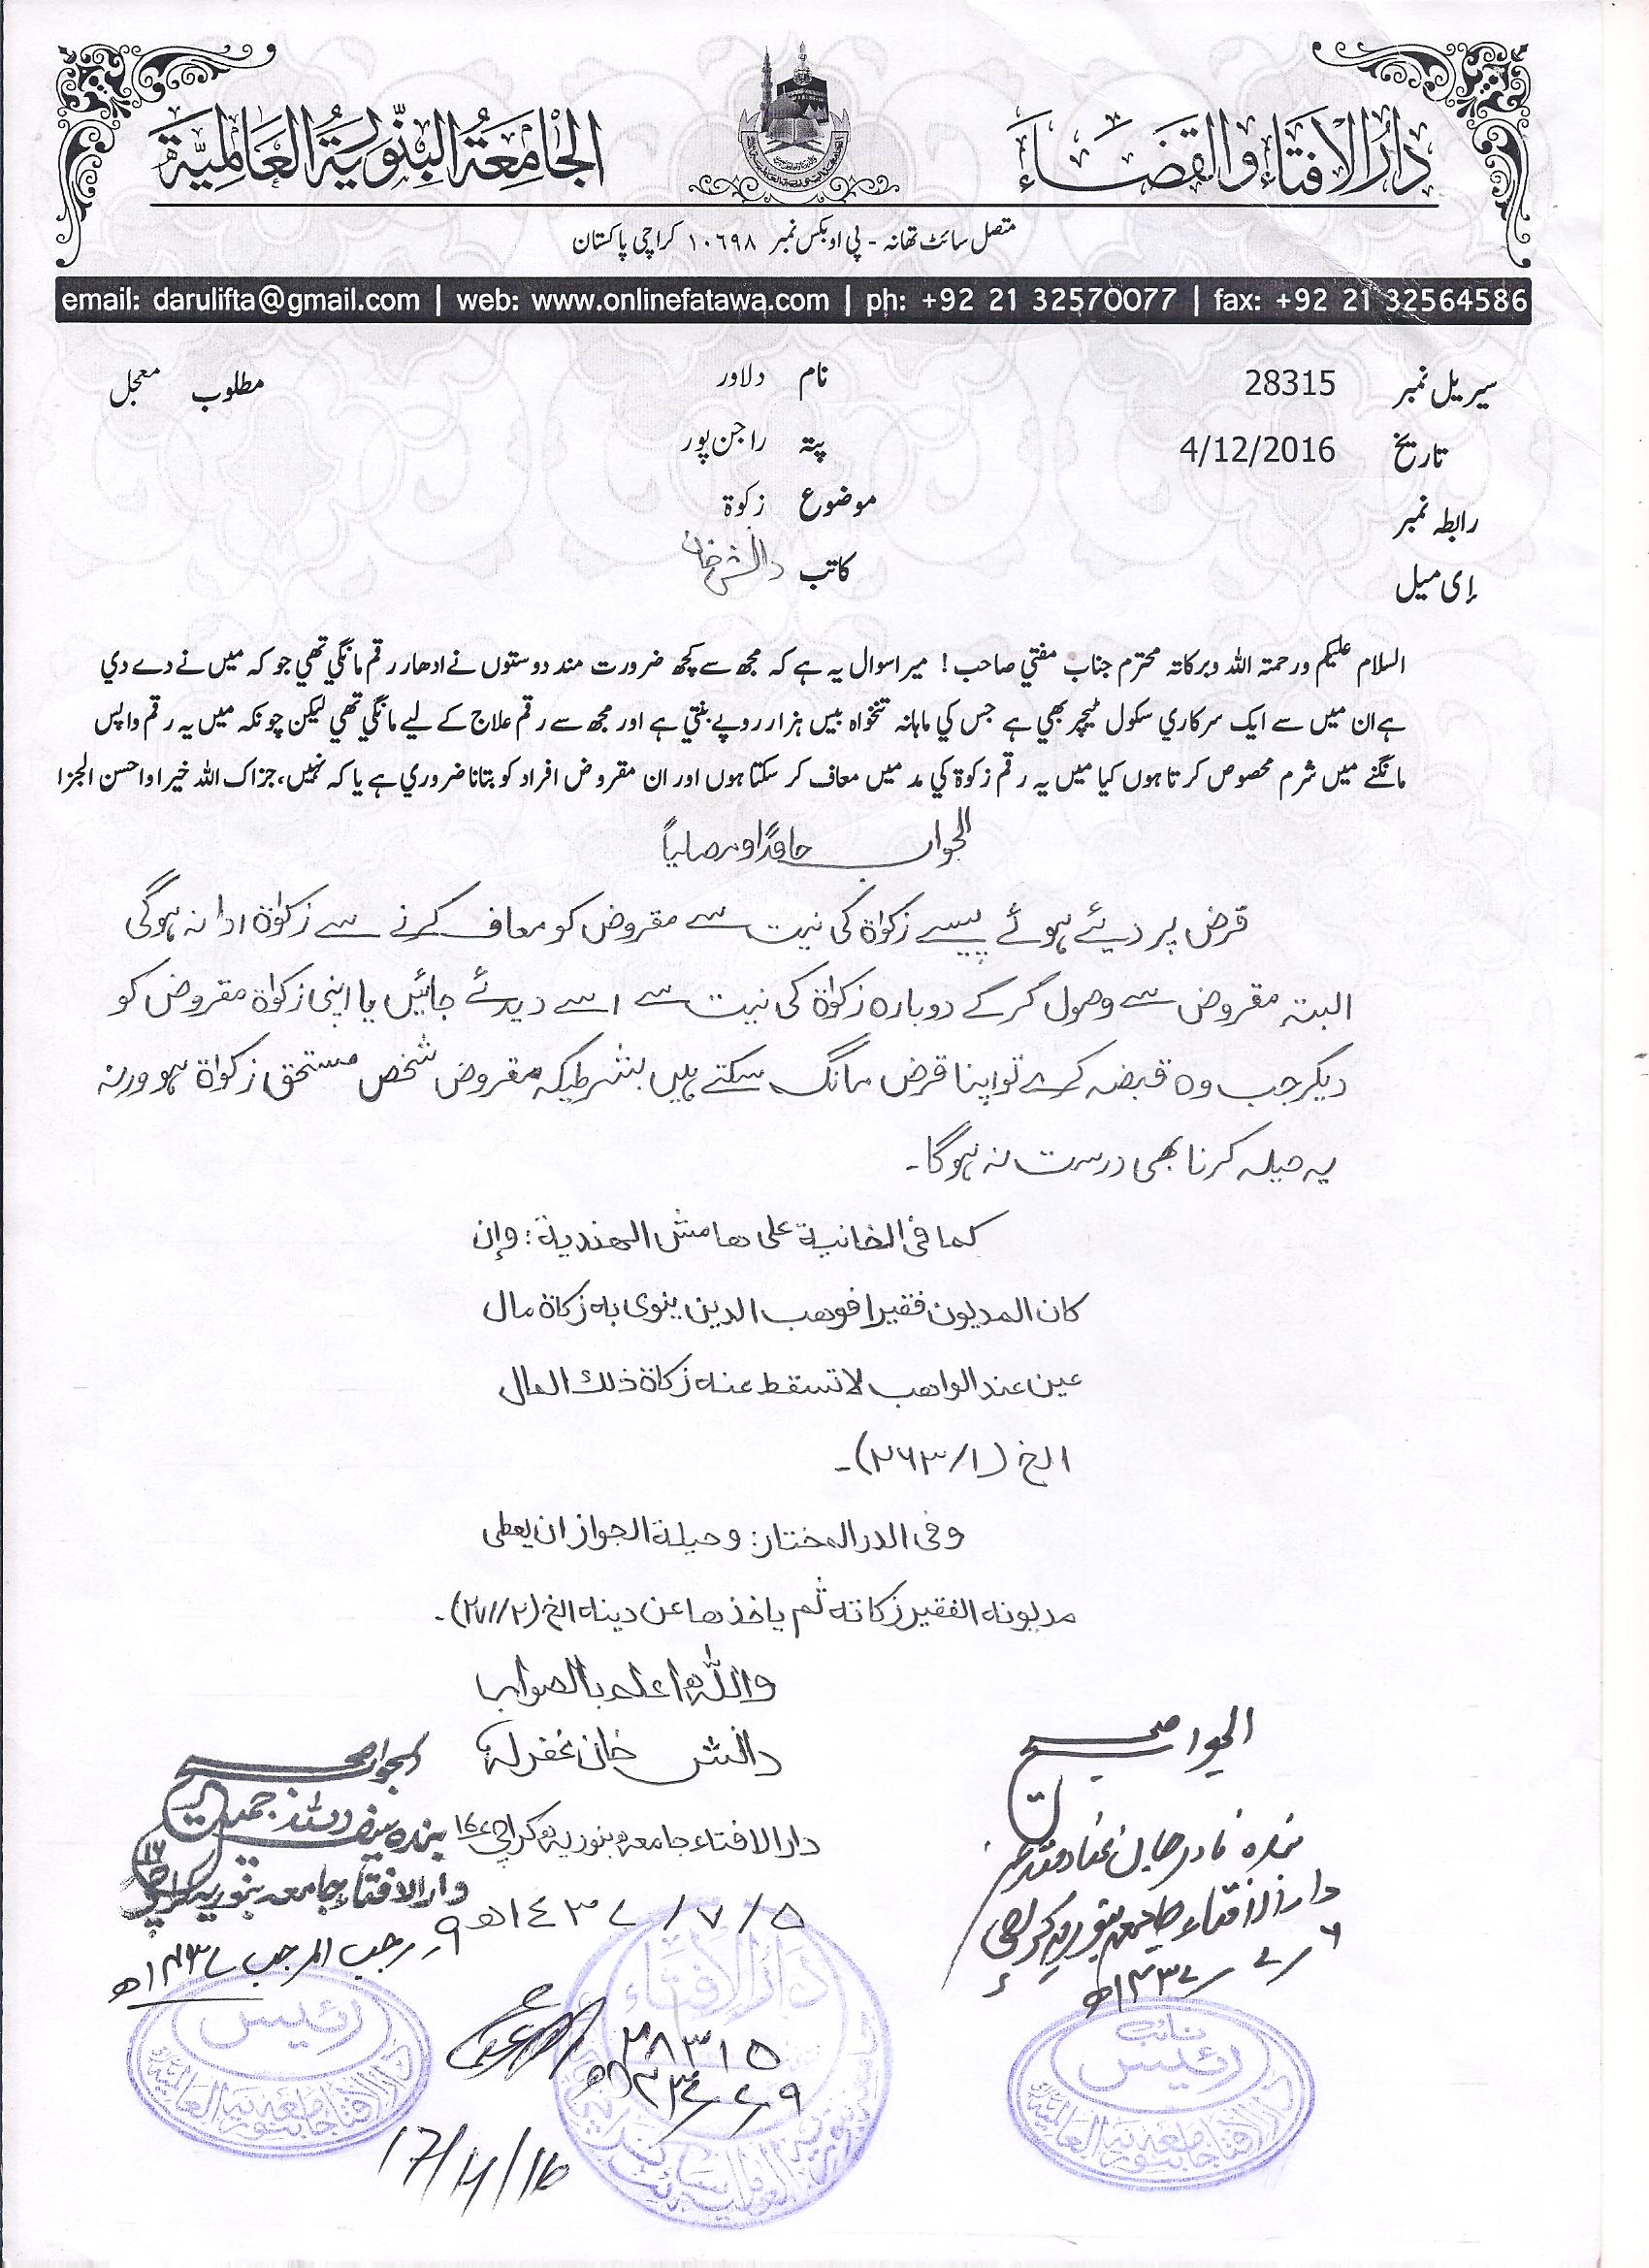 دار الافتاء والقضاء
الجامعة البنورية العالمية
متصل سائٹ تھانہ - پی او بکس نمبر ١٠٦٩٨ کراچی پاکستان
email: darulifta@gmail.com | web: www.onlinefatawa.com | ph: +92 21 32570077 | fax: +92 21 32564586
سیریل نمبر 28315 نام دلاور مطلوب معجل
تاریخ 4/12/2016 پتہ راجن پور
رابطہ نمبر موضوع زکوۃ
ای میل کاتب دانش خان
السلام علیکم ورحمتہ اللہ وبرکاتہ محترم جناب مفتي صاحب! میرا سوال یہ ہے کہ مجھ سے کچھ ضرورت مند دوستوں نے ادھار رقم مانگي تھي جو کہ میں نے دے دي
ہے ان میں سے ایک سرکاري سکول ٹیچر بھي ہے جس کي ماہانہ تنخواہ بیس ہزار روپے بنتي ہے اور مجھ سے رقم علاج کے لیے مانگي تھي لیکن چونکہ میں یہ رقم واپس
مانگنے میں شرم محصوص کرتا ہوں کیا میں یہ رقم زکوۃ کي مد میں معاف کر سکتا ہوں اور ان مقروض افراد کو بتانا ضروري ہے یا کہ نہیں، جزاک اللہ خیرا واحسن الجزا
الجواب حامدًا ومصلیاً
قرض پر دیئے ہوئے پیسے زکوٰۃ کی نیت سے مقروض کو معاف کرنے سے زکوٰۃ ادا نہ ہوگی
البتہ مقروض سے وصول کرکے دوبارہ زکوٰۃ کی نیت سے اسے دیدئے جائیں یا اپنی زکوٰۃ مقروض کو
دیکر جب وہ قبضہ کرے تو اپنا قرض مانگ سکتے ہیں بشرطیکہ مقروض شخص مستحق زکوٰۃ ہو ورنہ
یہ حیلہ کرنا بھی درست نہ ہوگا۔
كما فى الخانية على هامش الهندية: وإن
كان المديون فقيرا فوهب الدين ينوى به زكاة مال
عين عند الواهب لا تسقط عنه زكاة ذلك المال
الخ (١/٢٦٣)۔
وفى الدر المختار: وحيلة الجواز ان يعطى
مديونه الفقير زكاته ثم ياخذها عن دينه الخ (٢/٢٧١)۔
واللہ اعلم بالصواب
دانش خان غفرلہ
دار الافتاء جامعہ بنوریہ کراچی ١٦
٥/٧/١٤٣٧ھ
الجواب صحیح
دار الافتاء جامعہ بنوریہ کراچی
٦/٧/١٤٣٧ھ
الجواب صحیح
دار الافتاء جامعہ بنوریہ کراچی
٩ رجب المرجب ١٤٣٧ھ
٢٨٣١٥
٩/٧/١٤٣٧ھ
17/4/16
دار الافتاء
رئیس
نائب رئیس